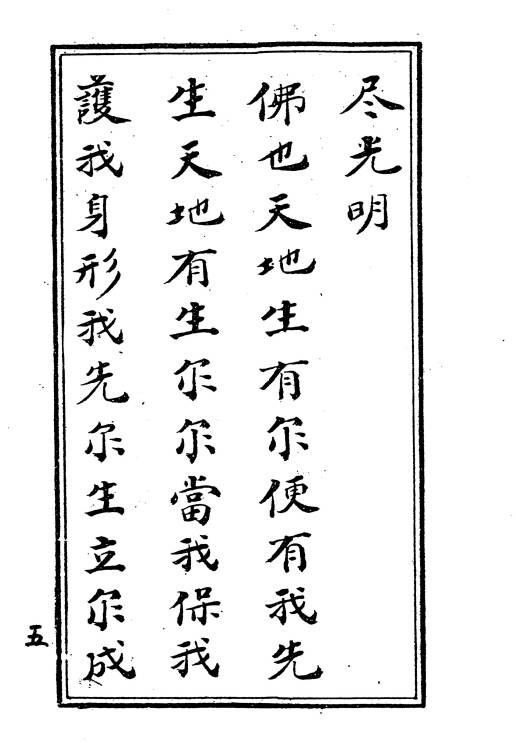 尽光明
佛也天地生有尔便有我先
生天地有生尔尔當我保我
護我身形我先尔生立尔成
五